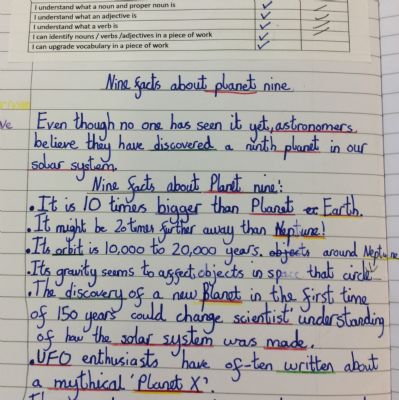 I understand what a noun and proper noun is
I understand what an adjective is
I understand what a verb is
I can identify nouns / verbs /adjectives in a piece of work
I can upgrade vocabulary in a piece of work
Nine facts about planet nine.
Even though no one has seen it yet, astronomers
believe they have discovered a ninth planet in our
solar system.
Nine facts about Planet nine:
• It is 10 times bigger than Planet Earth.
• It might be 20 times further away than Neptune!
• Its orbit is 10,000 to 20,000 years. objects around Neptune
• Its gravity seems to affect objects in space that circle
• The discovery of a new Planet in the first time
of 150 years could change scientist' understanding
of how the solar system was made.
• UFO enthusiasts have of-ten written about
a mythical 'Planet X'.